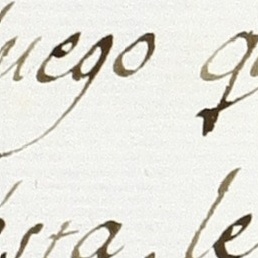 luego q
sta, le